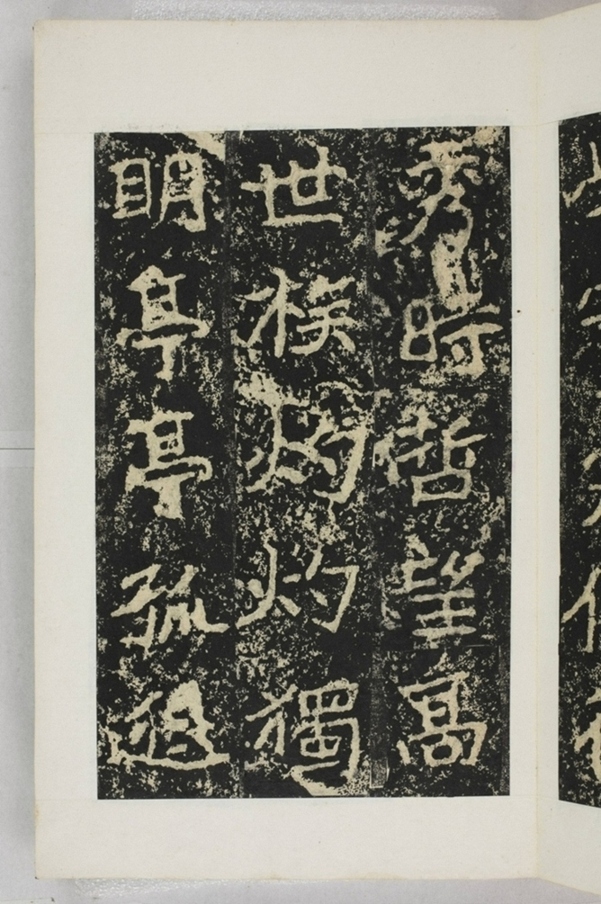 秀時哲望高
世族灼灼獨
眀亭亭孤逸